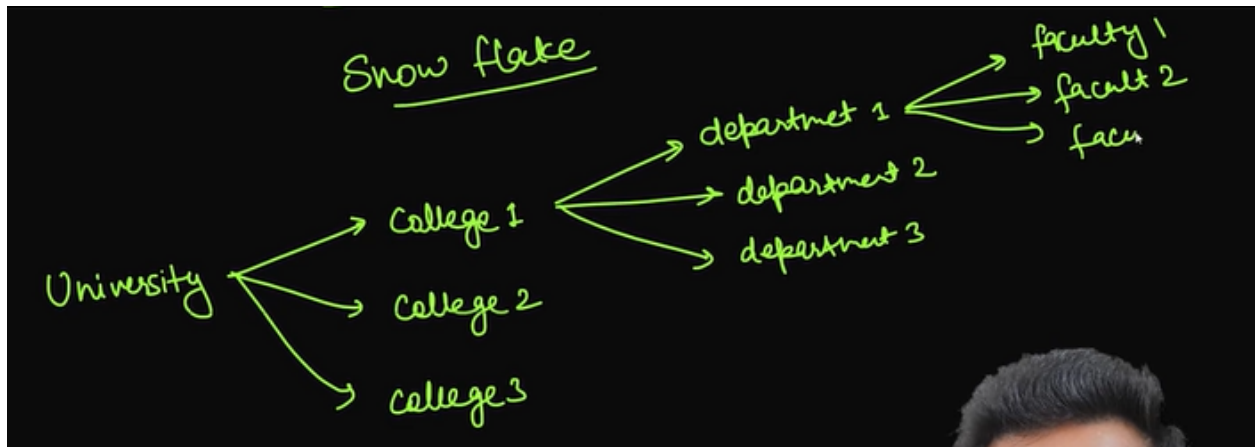 Snow flake
University
College 1
College 2
College 3
departmet 1
department 2
department 3
faculty 1
facult 2
facu